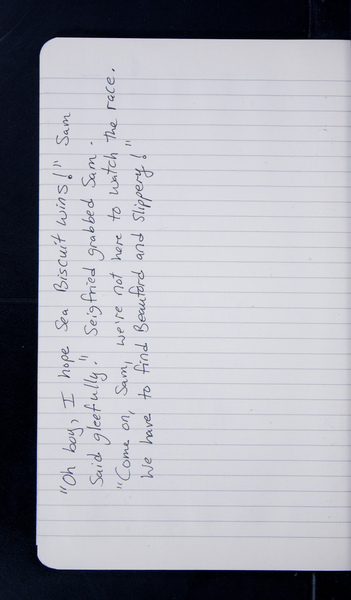 "Oh boy, I hope Sea Biscuit wins!" Sam
said gleefully." Seigfried grabbed Sam.
"Come on, Sam, we're not here to watch the race.
We have to find Beauford and Slippery!"